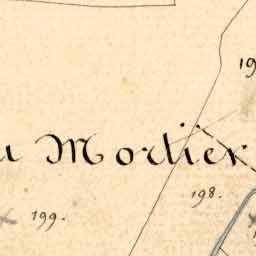 u Mortier
198.
199.